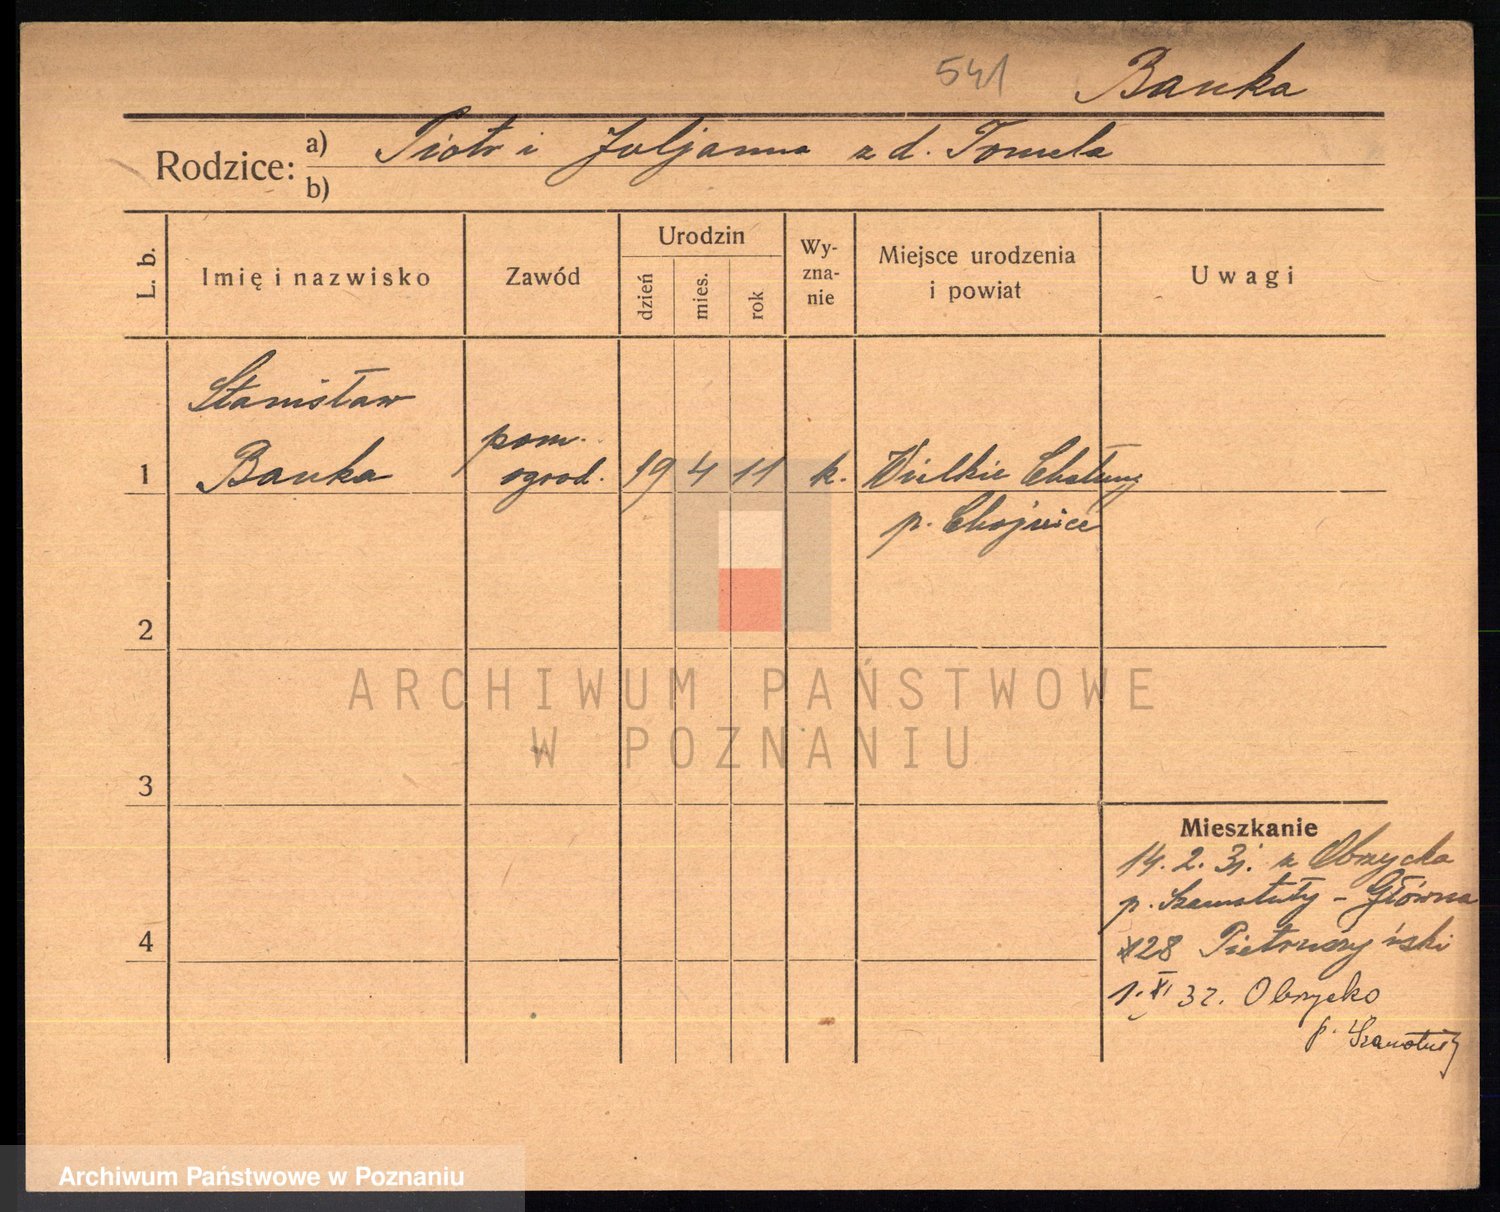 541 Banka
Rodzice: a) Piotr i Juljanna z d. Tomela
b)
L. b. Imię i nazwisko Zawód Urodzin dzień mies. rok Wy-zna-nie Miejsce urodzenia i powiat Uwagi
Stanisław
1 Banka pom. ogrod. 19 4 11 k. Wielkie Chełmy
p. Chojnice
2
3
4
Mieszkanie
14. 2. 31. z Obrzycka
p. Szamotuły - Główna
28
1. XI 32. Obrzycko
p. Szamotuły
ARCHIWUM PAŃSTWOWE
W POZNANIU
Archiwum Państwowe w Poznaniu